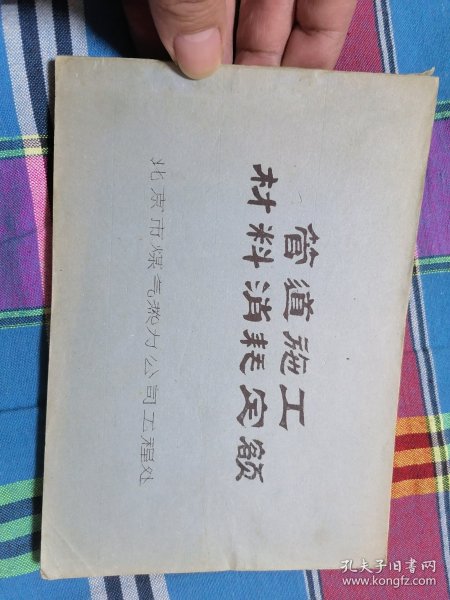 管道施工
材料消耗定额
北京市煤气热力公司工程处
孔夫子旧书网
www.kongfz.com